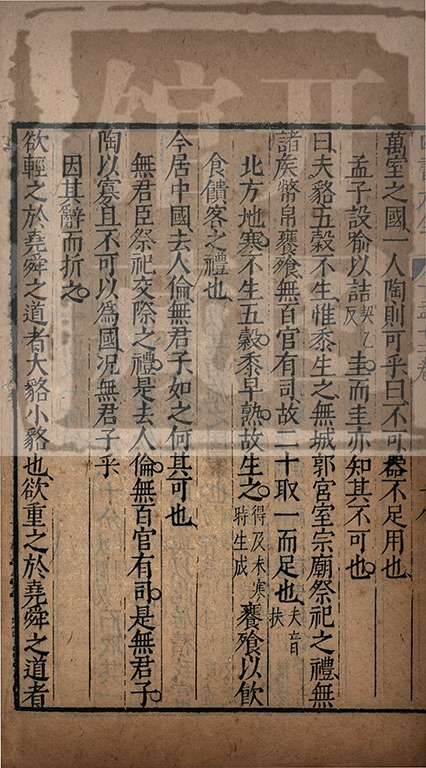 萬室之國一人陶則可乎曰不可器不足用也
孟子設喻以詰契乞反圭而圭亦知其不可也
曰夫貉五穀不生惟黍生之無城郭宮室宗廟祭祀之禮無
諸侯幣帛饔飧無百官有司故二十取一而足也夫音扶
北方地寒不生五穀黍早熟故生之得及未寒時生成饔飧以飲
食饋客之禮也
今居中國去人倫無君子如之何其可也
無君臣祭祀交際之禮是去人倫無百官有司是無君子
陶以寡且不可以為國況無君子乎
因其辭而折之
欲輕之於堯舜之道者大貉小貉也欲重之於堯舜之道者